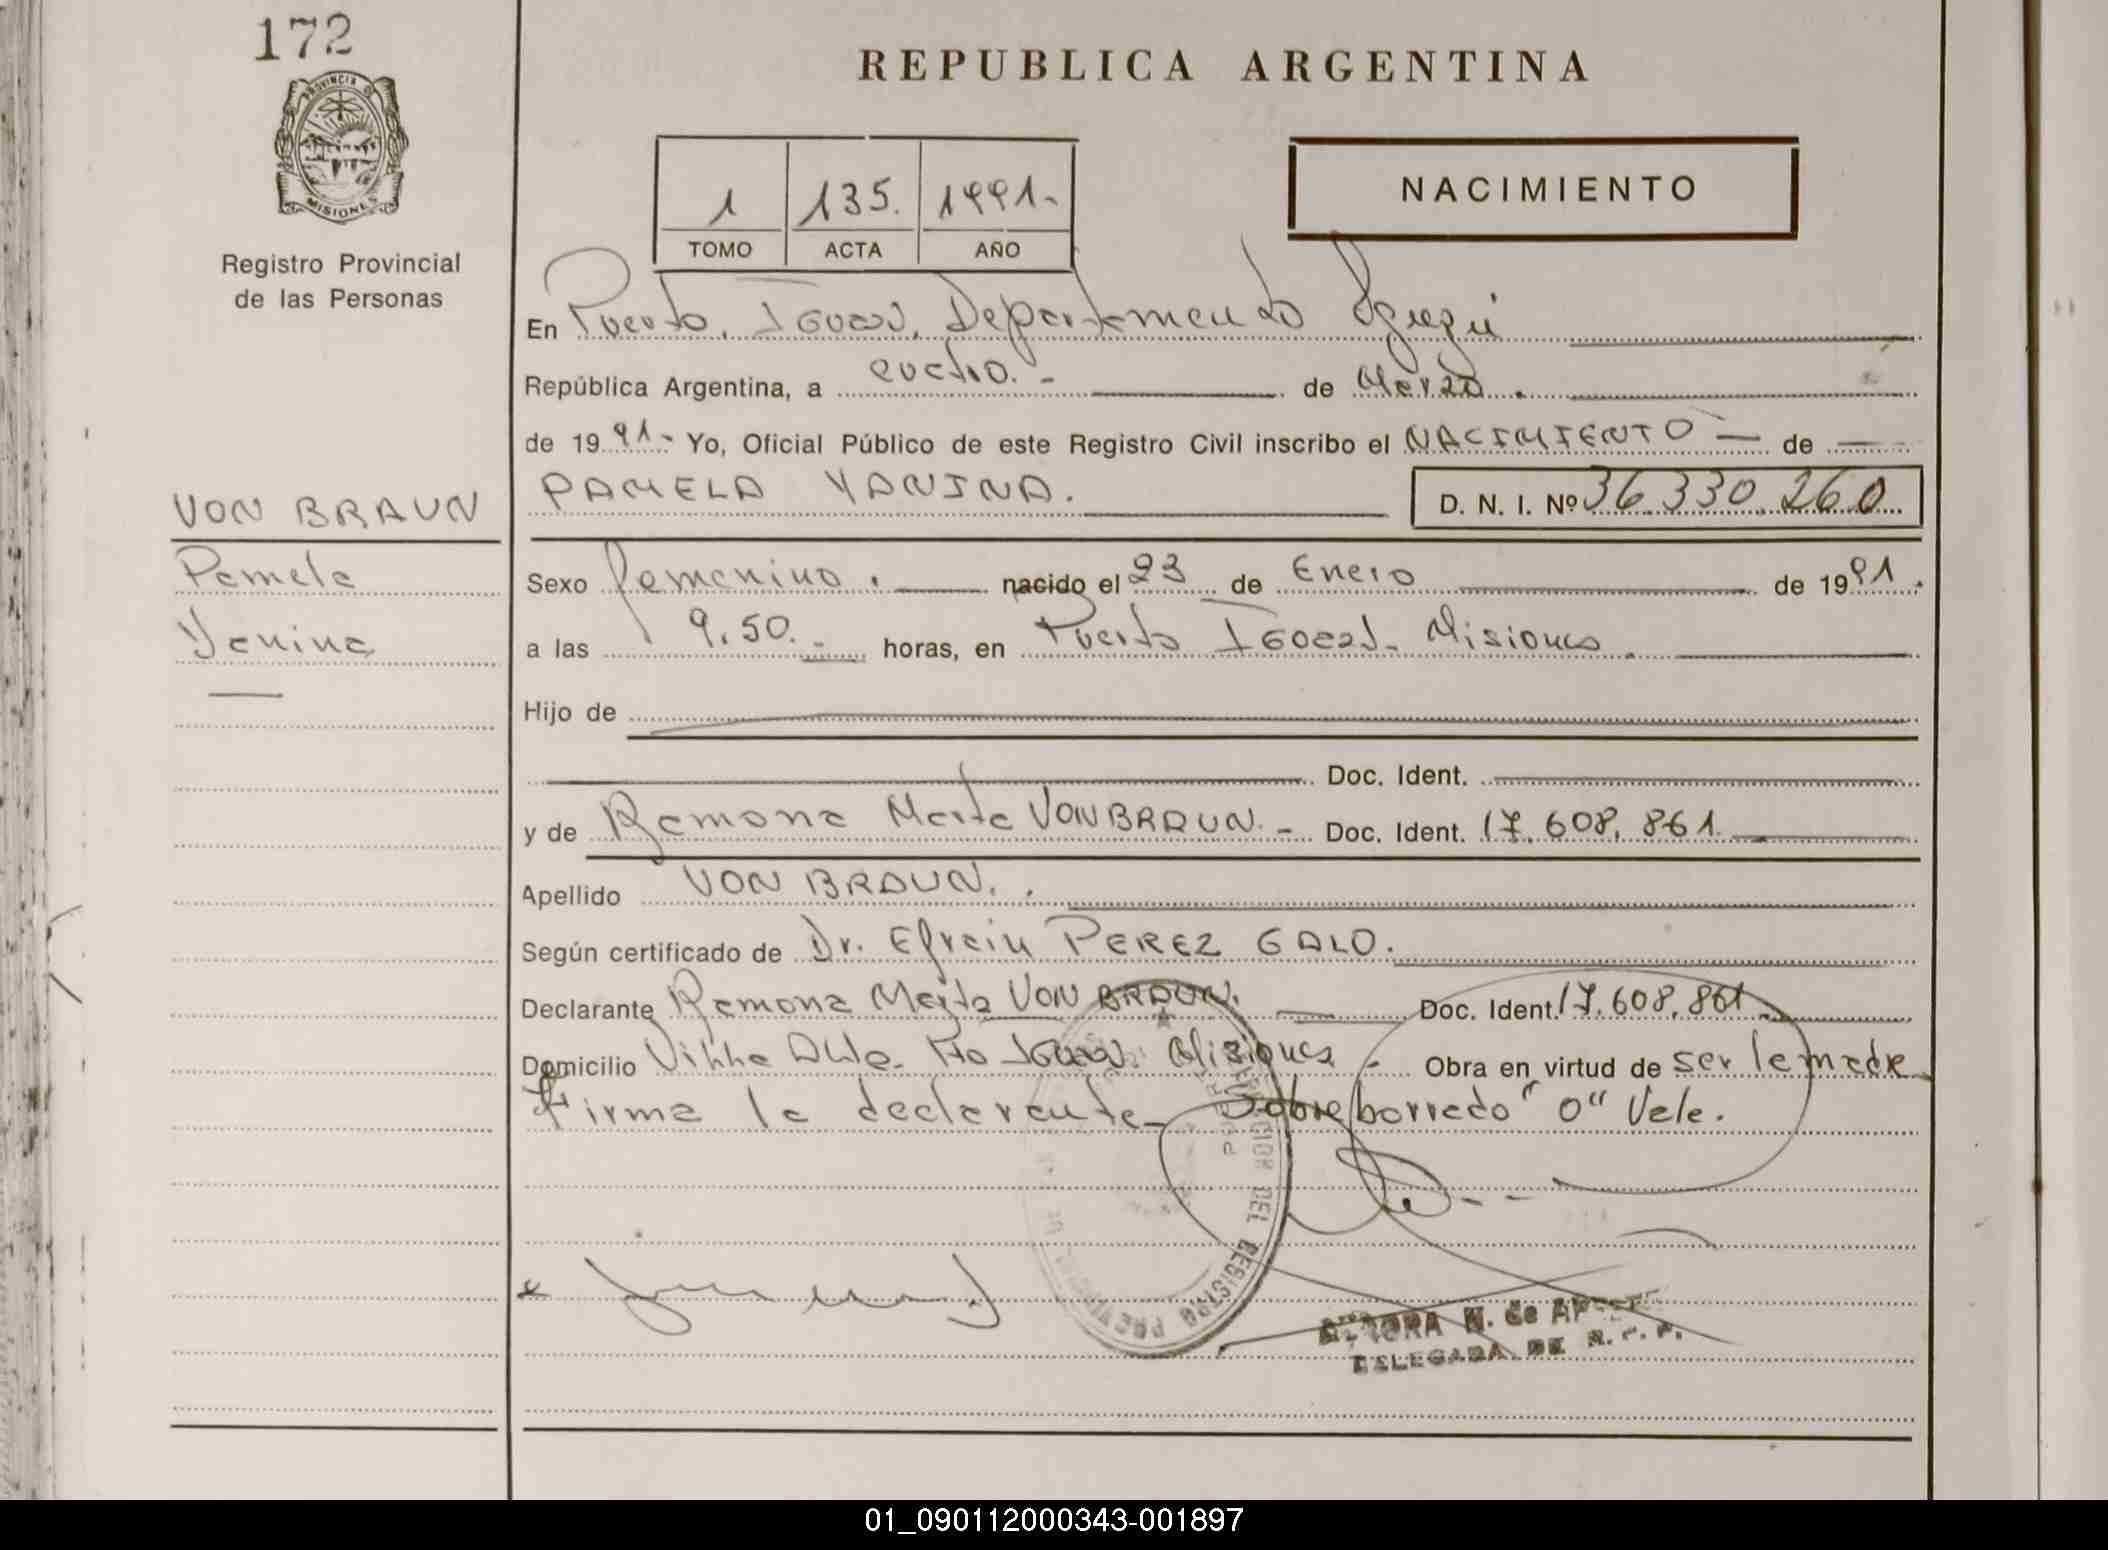 172
REPUBLICA ARGENTINA
PROVINCIA D MISIONES
Registro Provincial
de las Personas
1 135. 1991.-
TOMO ACTA AÑO
NACIMIENTO
En Puerto Iguazú, Departamento Iguazú
República Argentina, a cuatro.- de Marzo.
de 1991.- Yo, Oficial Público de este Registro Civil inscribo el NACIMIENTO — de
VON BRAUN
Pamela
Yanina
PAMELA YANINA. D. N. I. Nº 36.330.260
Sexo femenino. nacido el 23 de Enero de 1991.
a las 9.50.- horas, en Puerto Iguazú- Misiones.
Hijo de
Doc. Ident.
y de Ramona Marta VON BRAUN.- Doc. Ident. 17.608.861.
Apellido VON BRAUN..
Según certificado de Dr. Efrain PEREZ GALO.
Declarante Ramona Marta VON BRAUN. Doc. Ident. 17.608.861
Domicilio Villa Alta. Pto Iguazú. Misiones.- Obra en virtud de ser la madre
Firma la declarante- Sobre borrado "o" Vale.
DEL REGISTRO PROVINCIAL DE
N. de
DELEGADA DE R. P. P.
01_090112000343-001897